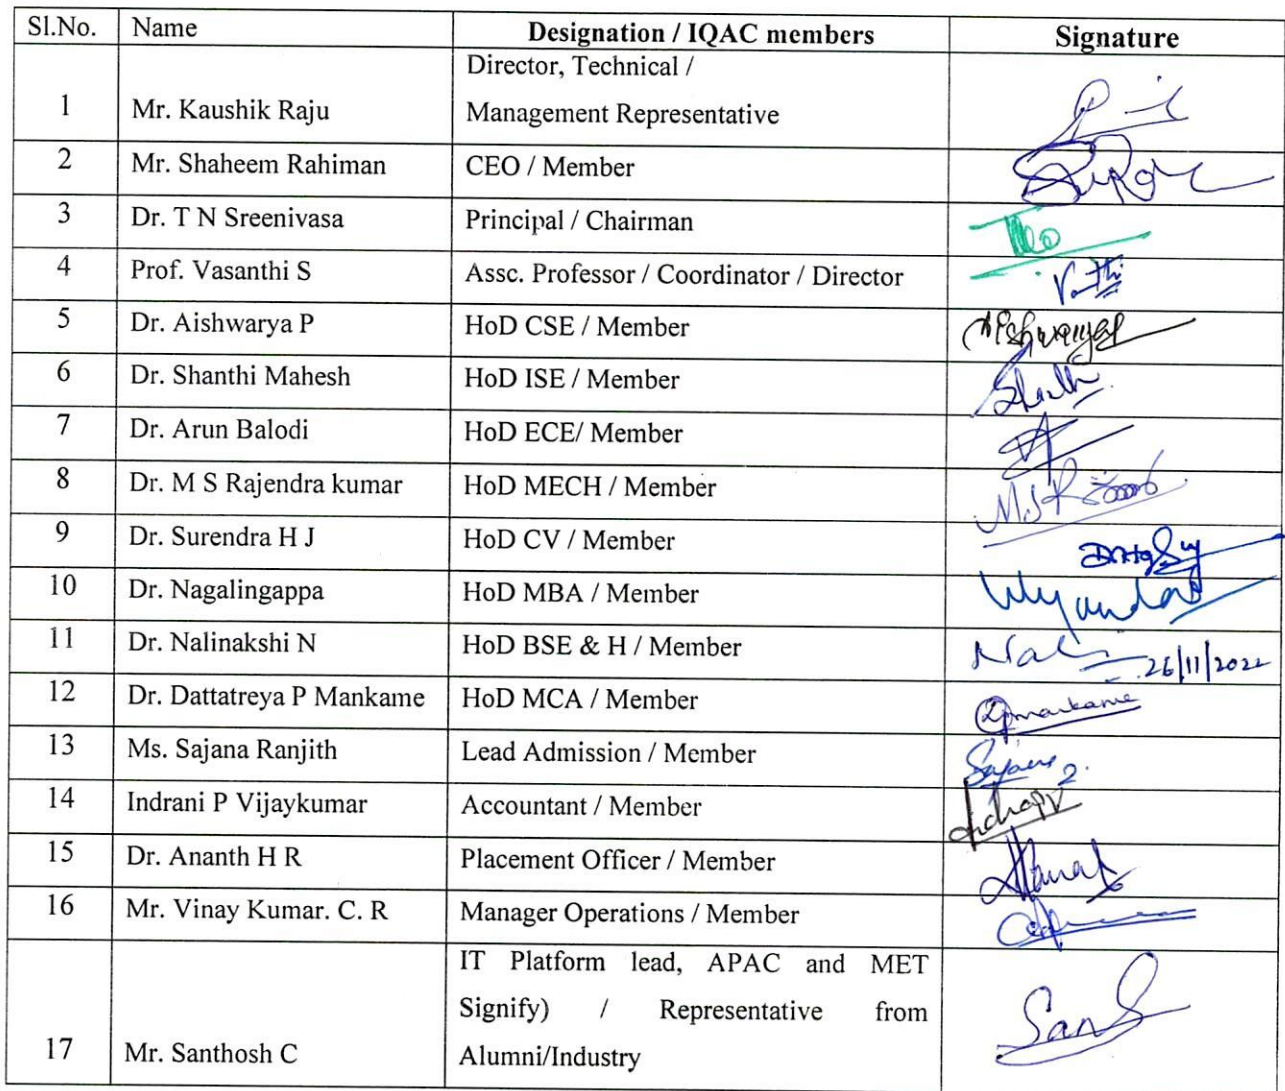 Sl.No. Name Designation / IQAC members Signature
Director, Technical /
1 Mr. Kaushik Raju Management Representative
2 Mr. Shaheem Rahiman CEO / Member
3 Dr. T N Sreenivasa Principal / Chairman
4 Prof. Vasanthi S Assc. Professor / Coordinator / Director
5 Dr. Aishwarya P HoD CSE / Member
6 Dr. Shanthi Mahesh HoD ISE / Member
7 Dr. Arun Balodi HoD ECE/ Member
8 Dr. M S Rajendra kumar HoD MECH / Member
9 Dr. Surendra H J HoD CV / Member
10 Dr. Nagalingappa HoD MBA / Member
11 Dr. Nalinakshi N HoD BSE & H / Member 26/11/2022
12 Dr. Dattatreya P Mankame HoD MCA / Member
13 Ms. Sajana Ranjith Lead Admission / Member
14 Indrani P Vijaykumar Accountant / Member
15 Dr. Ananth H R Placement Officer / Member
16 Mr. Vinay Kumar. C. R Manager Operations / Member
IT Platform lead, APAC and MET
Signify) / Representative from
17 Mr. Santhosh C Alumni/Industry